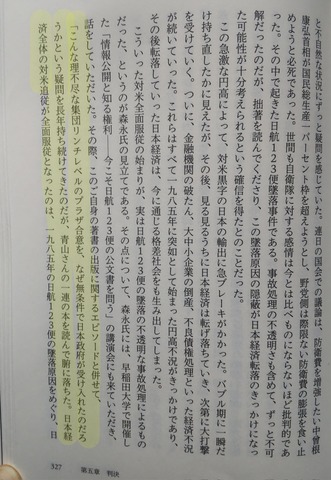 と不自然な状況にずっと疑問を感じていた。連日の国会での議論は、防衛費を増強したい中曽根
康弘首相が国民総生産一パーセント枠を超えようとし、野党側は際限ない防衛費の膨張を食い止
めようと必死であった。世間も自衛隊に対する感情は今とは比べものにならないほど批判的であ
った。その中で起きた日航１２３便墜落事件である。事故処理の不透明さも含めて、ずっと不可
解だったのだが、拙著を読んでくださり、この墜落原因の隠蔽が日本経済転落のきっかけになっ
た可能性が十分考えられるという確信を得たとのことだった。
この急激な円高によって、対米黒字の日本の輸出に急ブレーキがかかった。バブル期に一瞬だ
け持ち直したかに見えたが、その後、見る見るうちに日本経済は転げ落ちていき、次第に大打撃
を受けていく。ついに、金融機関の破たん、大中小企業の倒産、不良債権処理といった経済不況
が続いていった。これらはすべて一九八五年に突如として始まった円高不況がきっかけであり、
その後転落していった日本経済は、今に通じる格差社会をも生み出してしまった。
こういった対米全面服従の始まりが、実は日航１２３便の墜落の不透明な事故処理によるもの
だった、というのが森永氏の見立てである。その点について、森永氏には、早稲田大学で開催し
た「情報公開と知る権利――今こそ日航１２３便の公文書を問う」の講演会にも来ていただき、
話をしていただいた。その際、このご自身の著書の出版に関するエピソードと併せて、
「こんな理不尽な集団リンチレベルのプラザ合意を、なぜ無条件で日本政府が受け入れたのだろ
うかという疑問を長年持ち続けてきたのだが、青山さんの一連の本を読んで腑に落ちた。日本経
済全体の対米追従が全面服従となったのは、一九八五年の日航１２３便の墜落原因をめぐり、日
327 第五章 判決